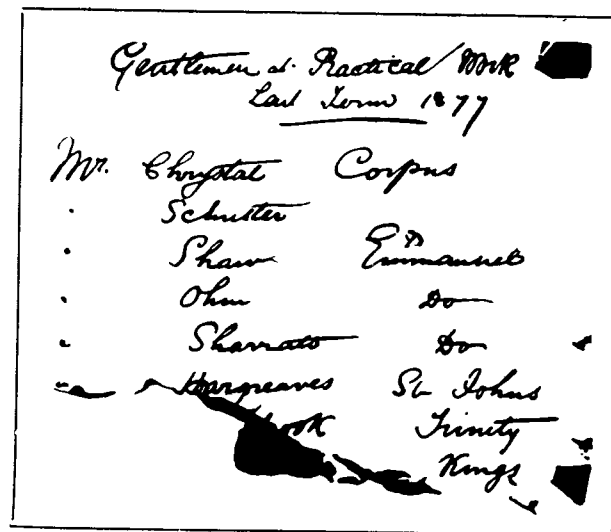 Gentlemen at Practical Work
Last Term 1877
Mr. Chrystal Corpus
. Schuster
. Shaw Emmanuel
. Ohm Do
. Sharrato Do
Hargreaves St Johns
Trinity
Kings